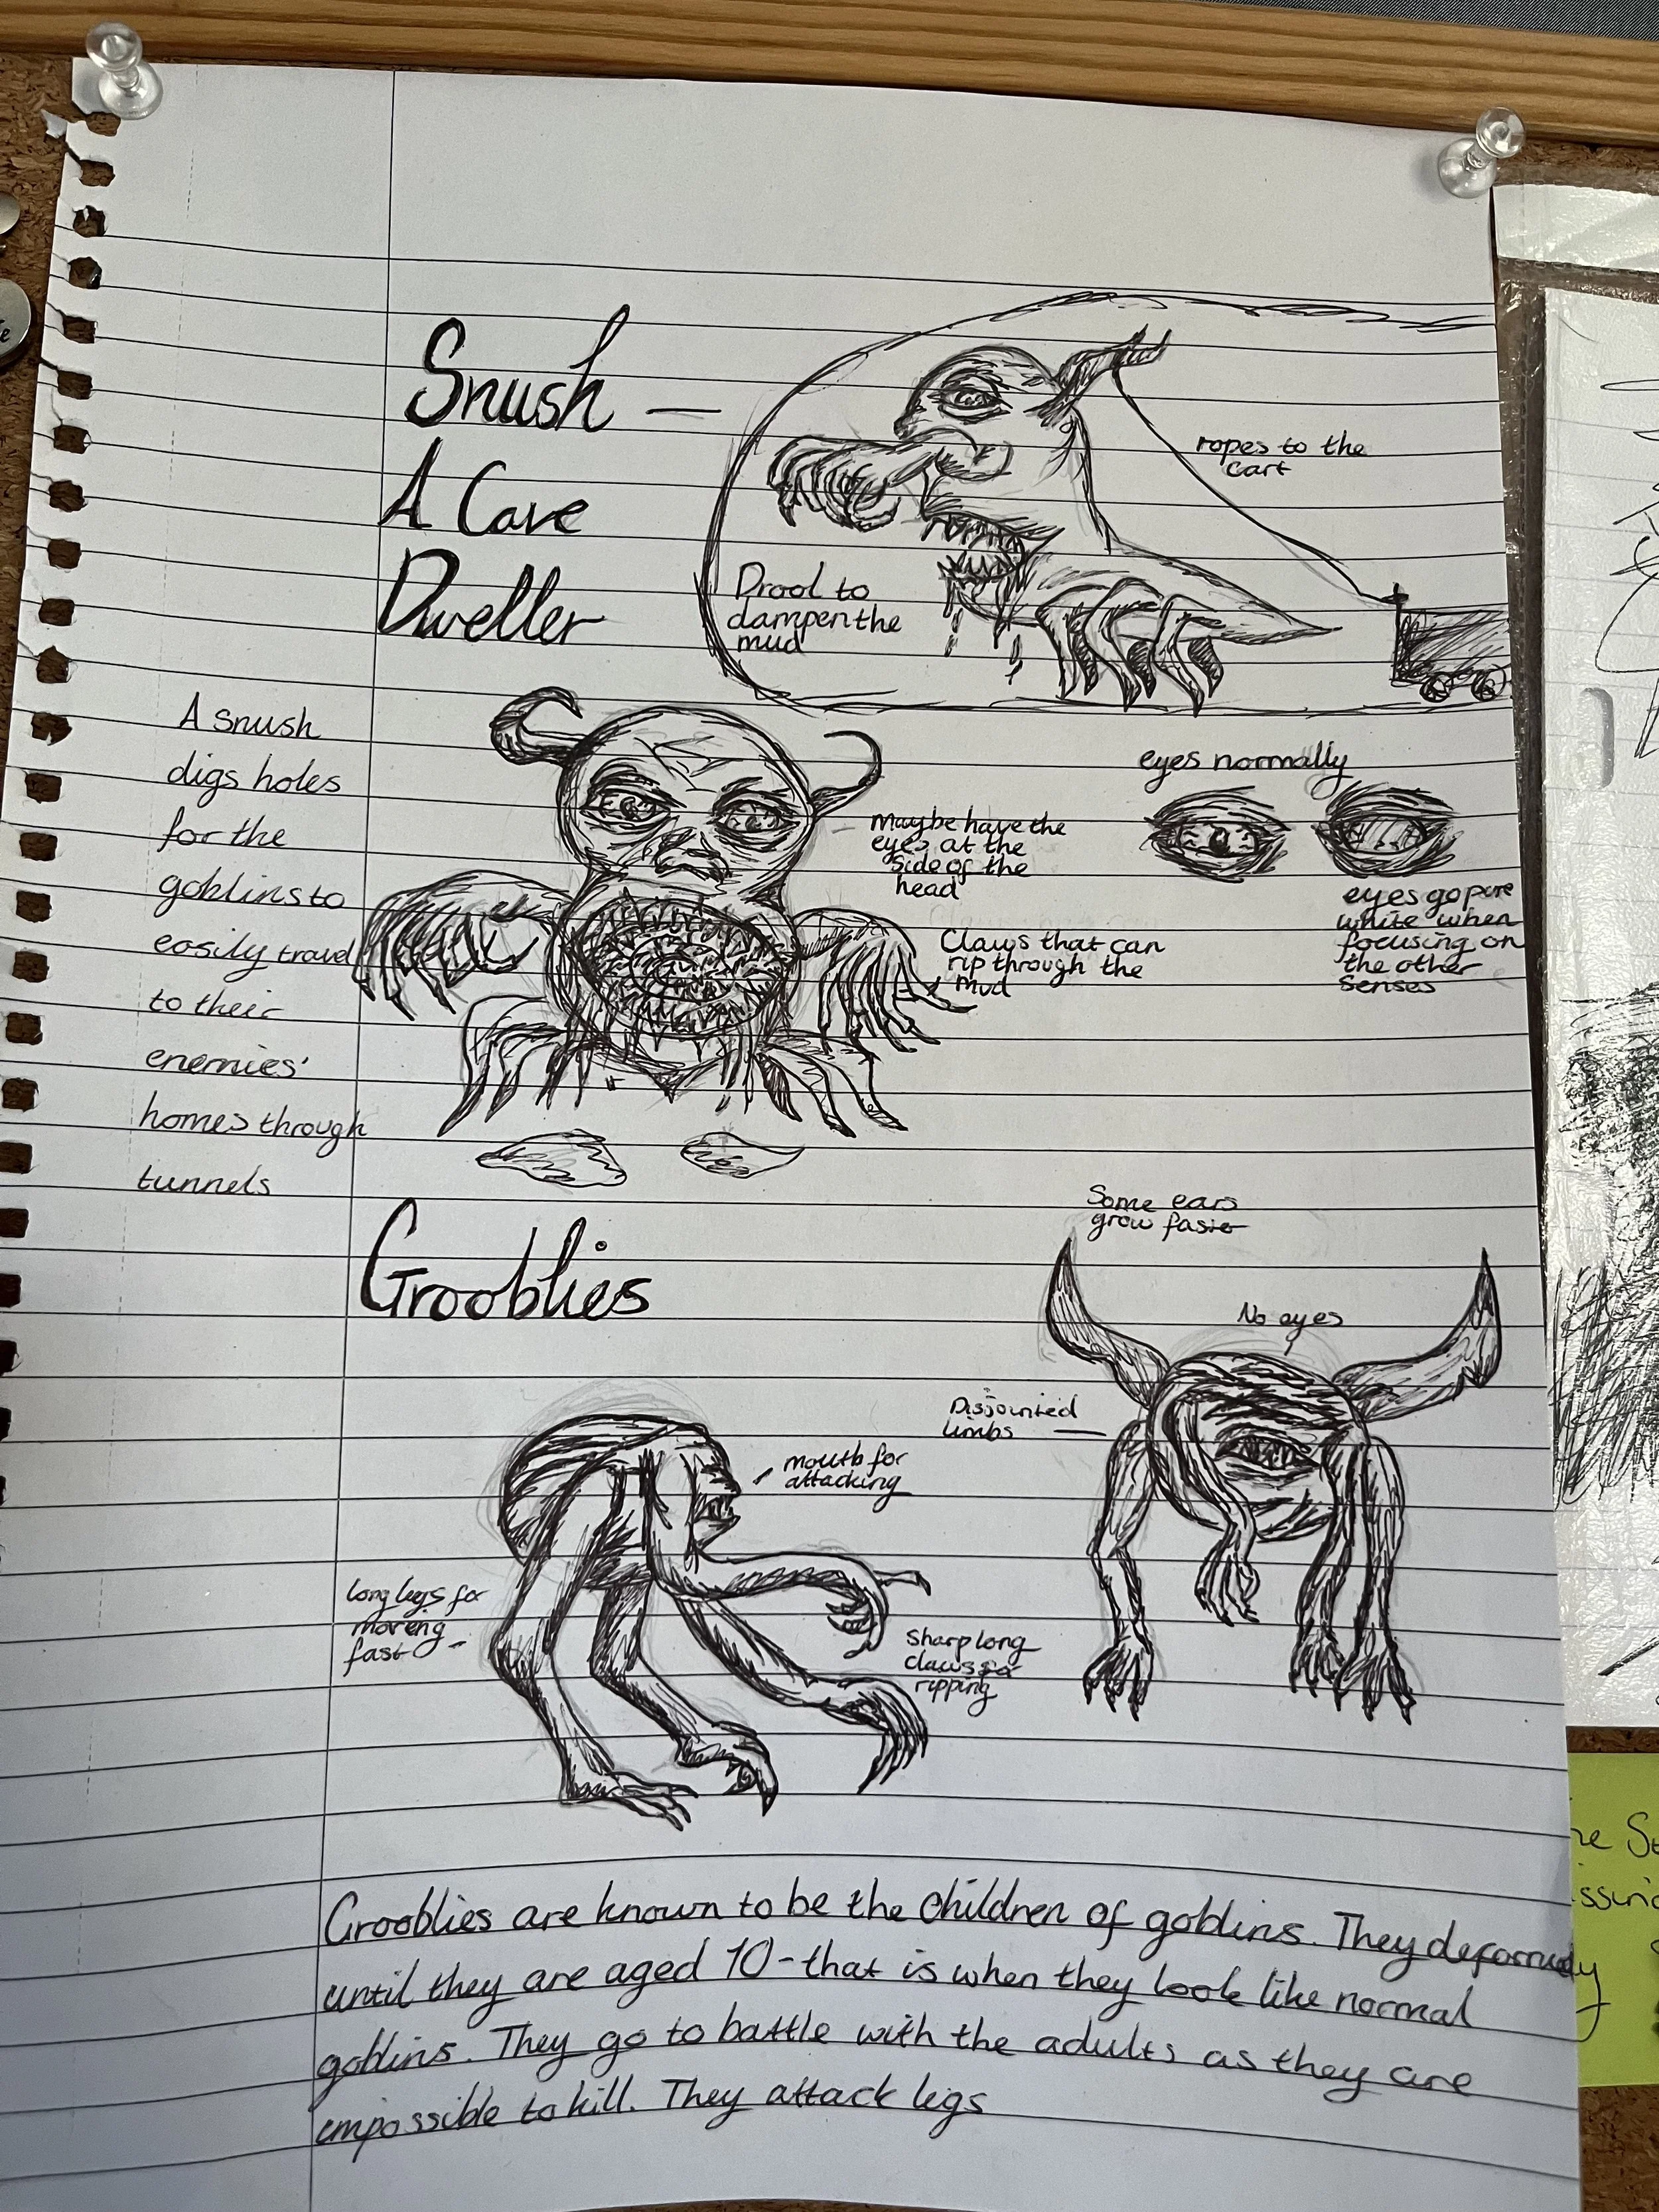 Snush —
A Cave
Dweller
ropes to the
cart
Drool to
dampen the
mud
A snush
digs holes
for the
goblins to
easily travel
to their
enemies'
homes through
tunnels
Maybe have the
eyes at the
side of the
head
eyes normally
eyes go pure
white when
focusing on
the other
senses
Claws that can
rip through the
mud
Grooblies
Some ears
grow faster
No eyes
Disjointed
limbs
mouth for
attacking
long legs for
moving
fast
Sharp long
claws for
ripping
Grooblies are known to be the children of goblins. They
until they are aged 10 - that is when they look like normal
goblins. They go to battle with the adults as they are
impossible to kill. They attack legs